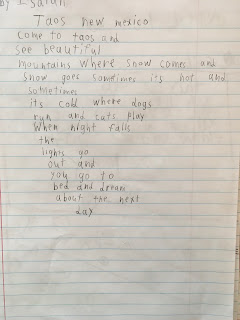 by Isaiah
Taos new mexico
come to taos and
see beautiful
mountains where snow comes and
snow goes sometimes its hot and
sometimes
its cold where dogs
run and cats play
When night falls
the
lights go
out and
you go to
bed and dream
about the next
day